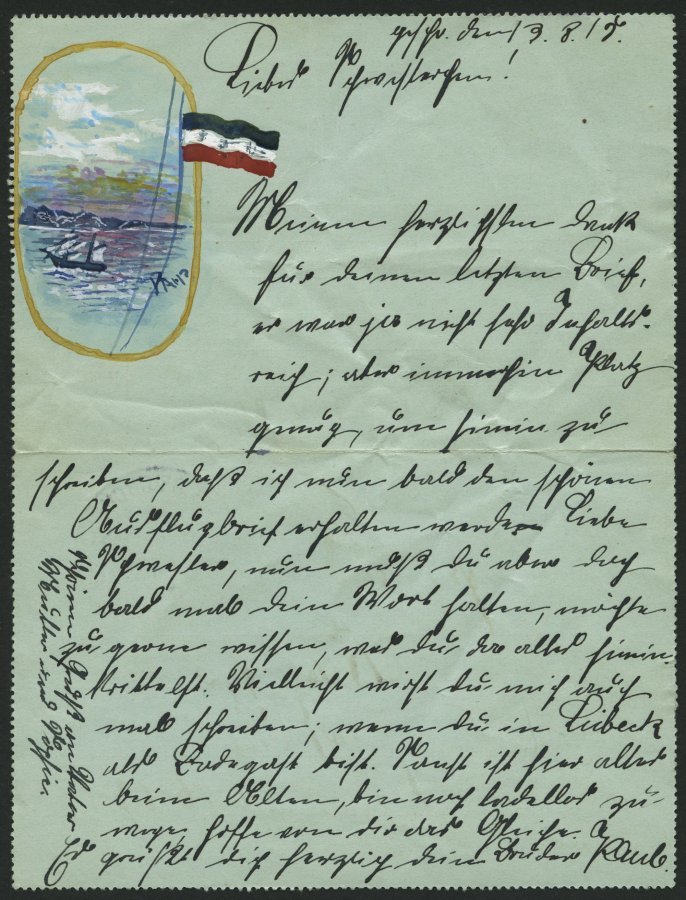 geschr. den 13.8.15.
Liebes Schwesterchen!
Meinen herzlichsten Dank
für deinen letzten Brief,
er war ja nicht sehr Inhalts-
reich; aber immerhin Platz
genug, um hinein zu
schreiben, daß ich nun bald den schönen
Ausflugbrief erhalten werde. Liebe
Schwester, nun mußt du aber doch
bald mal dein Wort halten, möchte
zu gerne wissen, was du da alles hinein
krittelst. Vielleicht wirst du mich auch
mal schreiben; wenn du in Lübeck
als Badegast bist. Sonst ist hier alles
beim Alten, bin noch tadellos zu-
wege, hoffe von dir das Gleiche. Es
grüßt dich herzlich dein Bruder
Einen Gruß an Vater
Mutter und